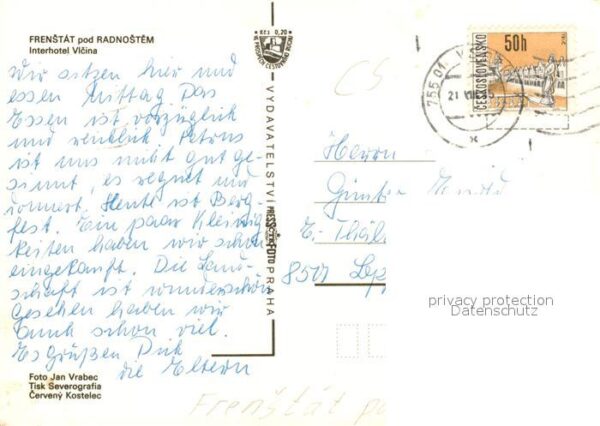 FRENŠTÁT pod RADNOŠTĚM
Interhotel Vlčina
Wir sitzen hier und
essen Mittag. Das
Essen ist vorzüglich
und reichlich. Petrus
ist uns nicht gut ge-
sinnt, es regnet und
donnert. Heute ist Berg-
fest. Ein paar Kleinig-
keiten haben wir schon
eingekauft. Die Land-
schaft ist wunderschön
Gesehen haben wir
auch schon viel.
Es Grüßen Dich
die Eltern
Foto Jan Vrabec
Tisk Severografia
Červený Kostelec
Kčs 0,20
VYDAVATELSTVÍ PRESSFOTO PRAHA
ČS
50h
ČESKOSLOVENSKO
755 01
21
Herrn
Günter
E.-Thäl
privacy protection
Datenschutz
Frenštát po